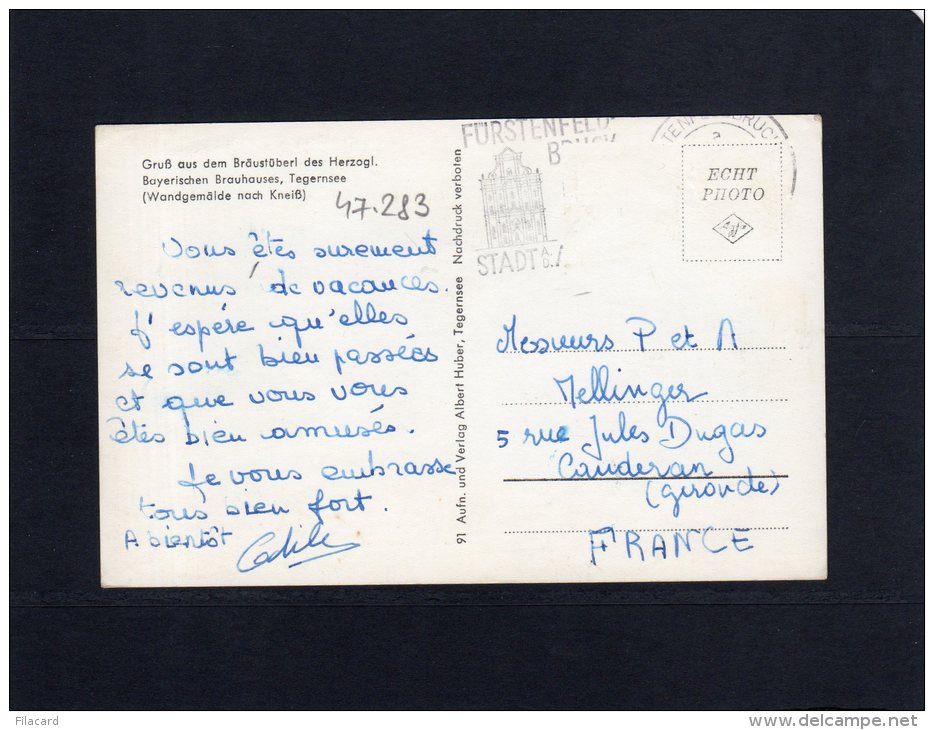 Gruß aus dem Bräustüberl des Herzogl.
Bayerischen Brauhauses, Tegernsee
(Wandgemälde nach Kneiß)
47.283
Vous êtes surement
revenus de vacances.
J'espére qu'elles
se sont bien passées
et que vous vous
êtes bien amusés.
Je vous embrasse
tous bien fort.
A bientôt
91 Aufn. und Verlag Albert Huber, Tegernsee Nachdruck verboten
FÜRSTENFELD-
BRUCK
STADT
ECHT
PHOTO
Messieurs P et A
Mellinger
5 rue Jules Dugas
Cauderan
(Gironde)
FRANCE
Filacard
www.delcampe.net